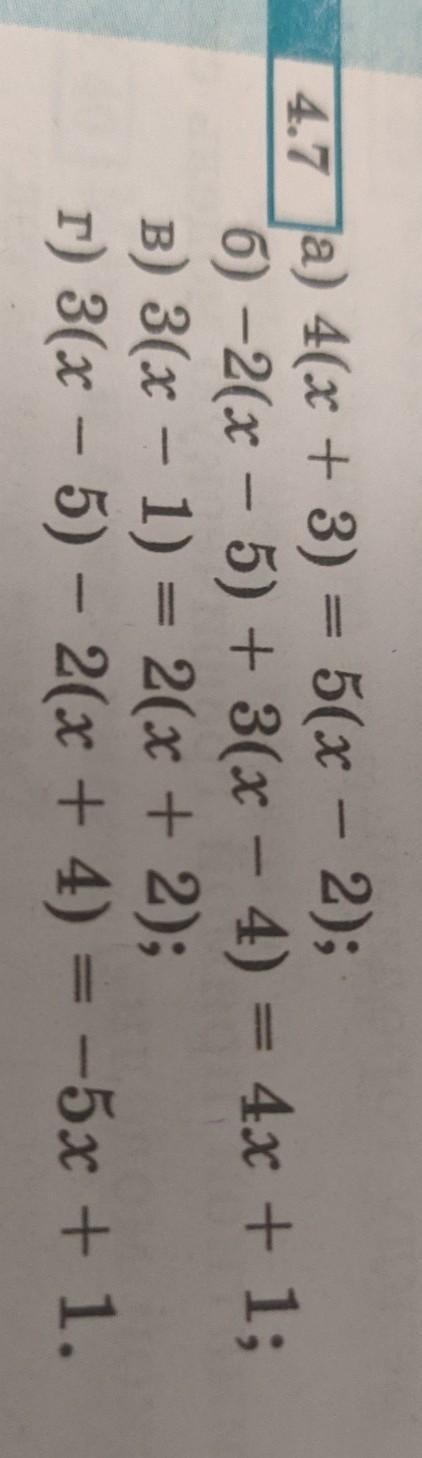 4.7 а) 4(x + 3) = 5(x − 2);
б) −2(x − 5) + 3(x − 4) = 4x + 1;
в) 3(x − 1) = 2(x + 2);
г) 3(x − 5) − 2(x + 4) = −5x + 1.